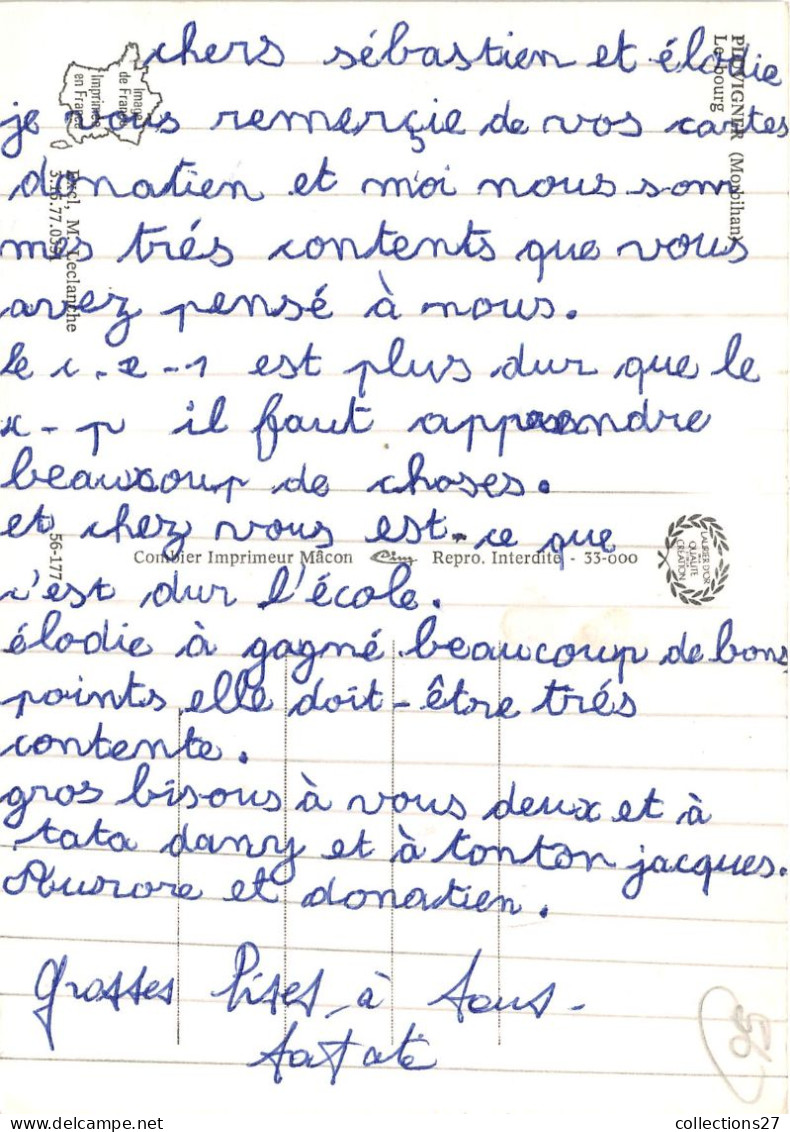 chers sébastien et élodie
je vous remerçie de vos cartes
donatien et moi nous som
mes trés contents que vous
avez pensé à nous.
le c.e-1 est plus dur que le
c-p il faut apprendre
beaucoup de choses.
et chez vous est-ce que
c'est dur l'école.
élodie à gagné beaucoup de bons
points elle doit-être trés
contente.
gros bisous à vous deux et à
tata dany et à tonton jacques.
Aurore et donatien.
Grosses Bises à tous-
PLUVIGNER (Morbihan)
Le bourg
Image
de France
Imprimé
en France
Excl, M. Leclanche
56-177
Combier Imprimeur Mâcon Cim Repro. Interdite - 33-000
LAURIER D'OR
QUALITÉ
CRÉATION
95
collections27